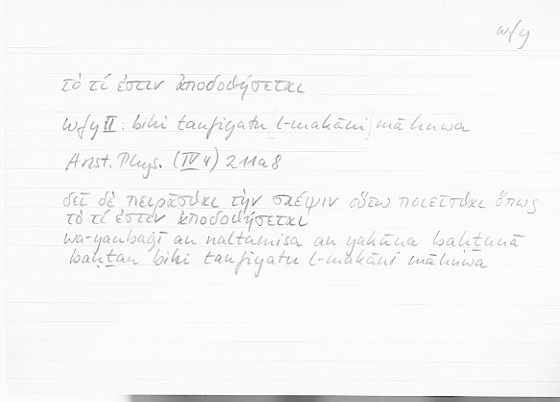 wfy
τὸ τί ἐστιν ἀποδοθήσεται
wfy II: bihi taufiyatu [l-makāni] mā huwa
Arist. Phys. (IV 4) 211a8
δεῖ δὲ πειρᾶσθαι τὴν σκέψιν οὕτω ποιεῖσθαι ὅπως
τὸ τί ἐστιν ἀποδοθήσεται
wa-yanbaġī an naltamisa an yakūna baḥṯunā
baḥṯan bihi taufiyatu l-makāni mā huwa